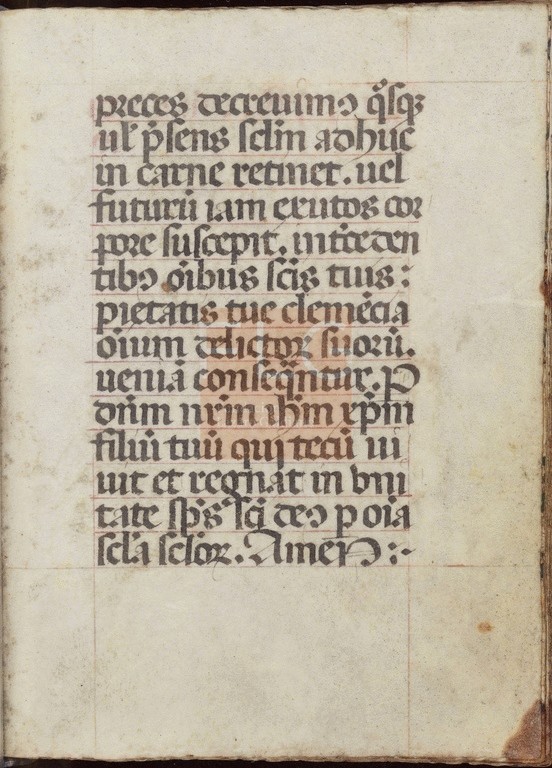 preces decreuimꝰ q̊sqꝫ
ul̄ p̄sens scl̄m adhuc
in carne retinet. uel
futurū iam exutos cor
pore suscepit. int̄ceden
tibꝰ oībus scīs tuis :
pietatis tue clemēcia
oīum delictoꝝ suorū.
ueniā conseq̄ntur. P
dn̄m nr̄m ih̄m xp̄m
filiū tuū qui tecū ui
uit et regnat in vni
tate sp̄s scī deꝰ p oīa
scl̄a scl̄oꝝ. Amen :-